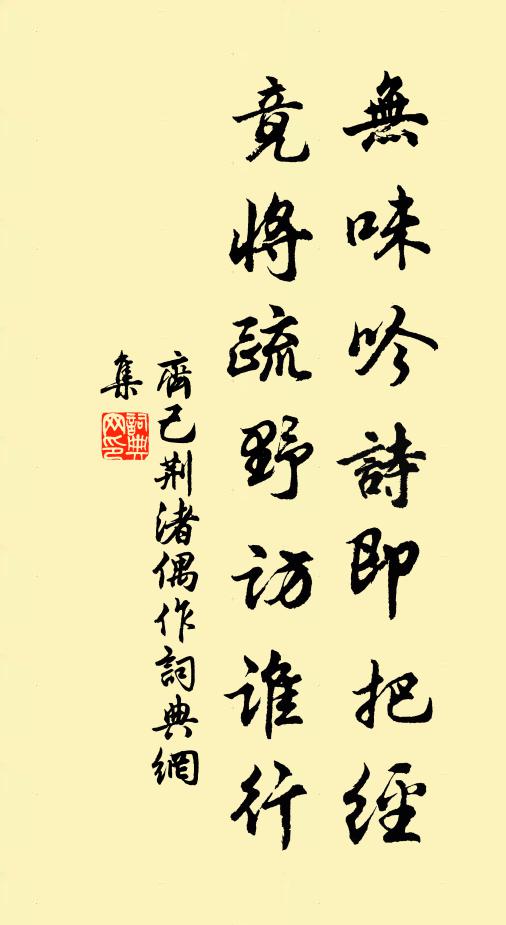 無味吟詩即把經
竟將疏野訪誰行
齊己荆渚偶作詞典網
集
詞典
网印